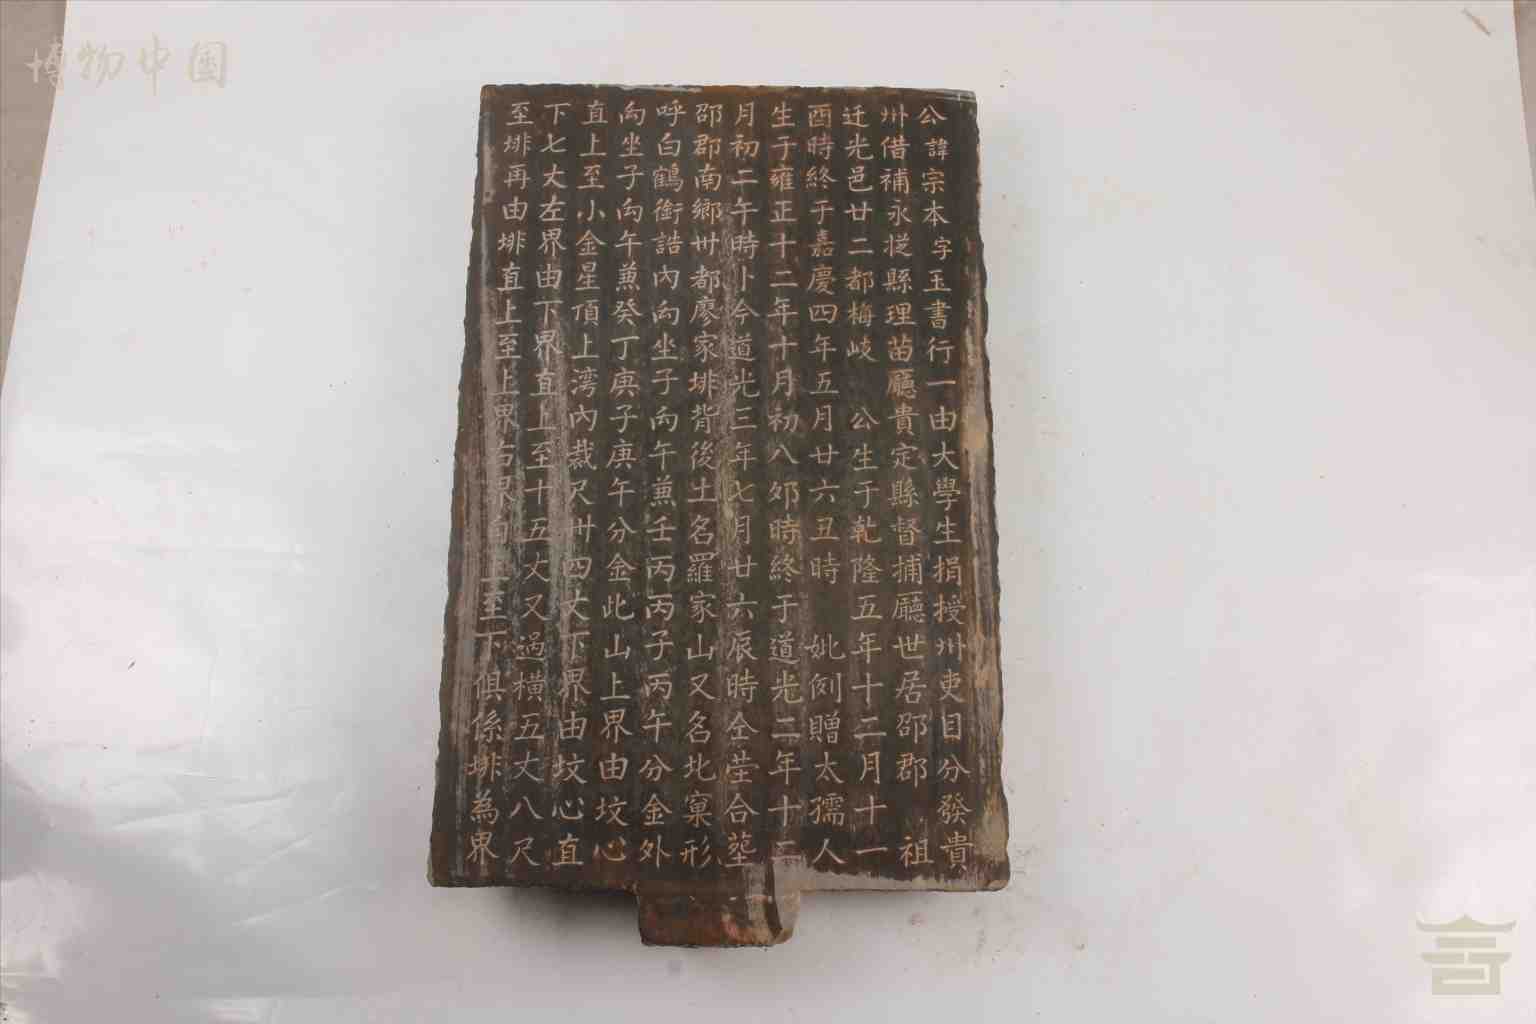 博物中国
公諱宗本字玉書行一由大學生捐授州吏目分發貴
州借補永從縣理苗廳貴定縣督捕廳世居邵郡 祖
迁光邑廿二都梅岐 公生于乾隆五年十二月十一
酉時終于嘉慶四年五月廿六丑時 妣例贈太孺人
生于雍正十二年十月初八卯時終于道光二年十二
月初二午時卜今道光三年七月廿六辰時仝茔合墓
邵郡南鄉卅都廖家排背後土名羅家山又名北窠形
呼白鶴銜誥內向坐子向午兼壬丙丙子丙午分金外
向坐子向午兼癸丁庚子庚午分金此山上界由坟心
直上至小金星頂上湾內裁尺卅四丈下界由坟心直
下七丈左界由下界直上至十五丈又過横五丈八尺
至排再由排直上至上界右界自上至下俱係排為界